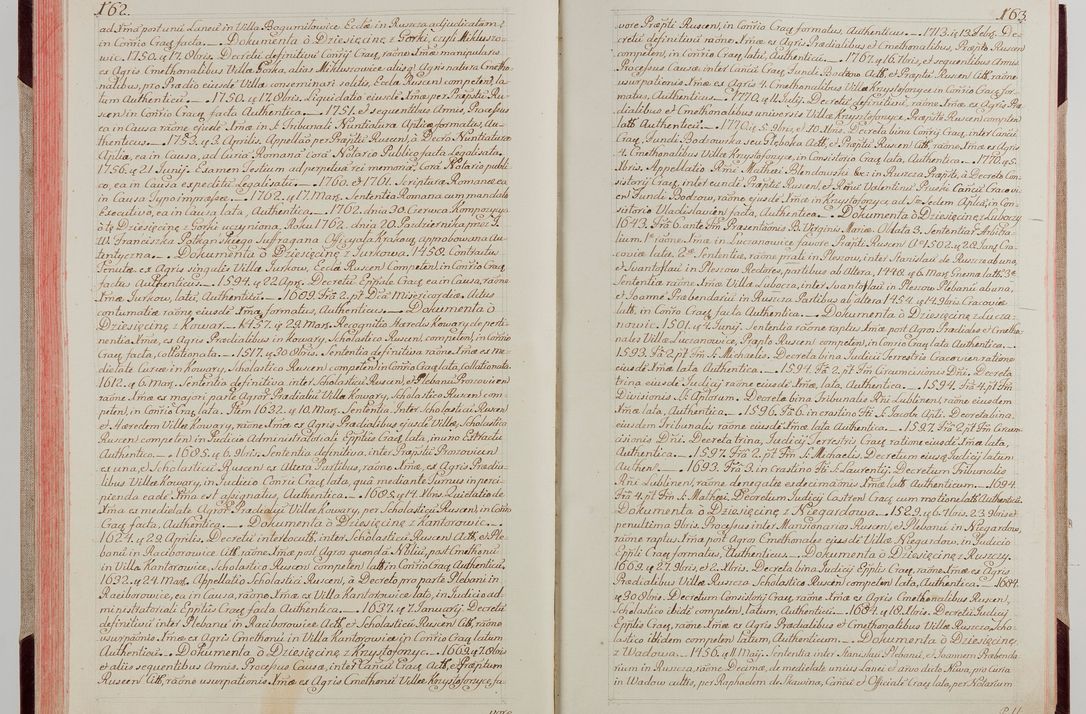 162.
ad Xmā portunii Lunei in Villa Bogumilowice Ecclæ in Ruscza adjudicatam
in Conrio Crac facta. — Dokumenta ò Dziesięcinę z Górki, czyli Mikluszo-
wic. 1750. 17. 9bris. Decretū definitivū Conrij Crac, raōne Xmæ manipularis
ex Agris Cmethonalibus Villæ Gorka, alias Mikluszowice aliisq Agris natura Cmetho-
nalibus, pro Prædio eiusdē Villæ conseminari solitis, Ecclæ Ruscen competen, la-
tum Authenticū. — 1750. 17. 8bris. Liquidatio eiusdē Xmæ per Præptū Ru-
scen in Conrio Crac facta Authentica. — 1751. et sequentibus Annis, Processus
ea in Causa raōne ejusdē Xmæ in S. Tribunali Nuntiatura Apliæ formatus, Au-
thenticus. — 1753. 3. Aprilis. Appellāo per Præptū Ruscen, à Decrō Nuntiaturæ
Apliæ, ea in Causa, ad Curiā Romanā Corā Notario Publico facta Legalisata.
1756. 21 Junij. Examen Testium ad perpetuā rei memoriā, Corā Notario publi-
co, ea in Causa expeditū Legalisatū. — 1760. et 1761. Scripturæ Romanæ ea
in Causa Typo impressæ. — 1762. 17. Marij. Sententia Romana cum mandato
Executivo, ea in Causa lata, Authentica. — 1762. dnia 30. Czerwca Kompozycya
ò tę Dziesięcinę z Górki uczyniona. Roku 1762. dnia 20. Października przez J.
W. Franciszka Potkańskiego Suffragana Officyała Krakow, approbowana Au-
tentyczna. — Dokumenta ò Dziesięcinę z Jurkowa. 1458. Contractus
Tenutæ ex Agris singulis Villæ Jurkow, Ecclæ Ruscen Competen, in Conrio Crac
factus Authenticus. — 1594. 22 Apr. Decretū Epplale Crac ea in Causa, raōne
Xmæ Jurkow, latū, Authenticū. — 1609. Fra 2. pt Dcā Misericordiæ. Actus
contumatiæ raōne eiusdē Xmæ, formatus, Authenticus. — Dokumenta ò
Dziesięcinę z Kowar. 1457. 29. Marij. Recognitio Hæredis Kowary de perti-
nentia Xmæ, ex Agris Prædialibus in Kowary, Scholastico Ruscen, competen, in Conrio
Crac facta, collationata. — 1517. 30. 8bris. Sententia definitiva raōne Xmæ ex me-
dietate Curiæ in Kowary, Scholastico Ruscen competen, in Conrio Crac lata, collationata.
1612. 6. Marij. Sententia definitiva inter Scholasticū Ruscen, et Plebanū Proszovien
raōne Xmæ ex majori parte Agror Prædialiū Villæ Kowary, Scholastico Ruscen com-
peten, in Conrio Crac lata. Item 1632. 10. Marij. Sententia Inter Scholasticū Ruscen
et Hæredem Villæ Kowary, raōne Xmæ ex Agris Prædialibus ejusdē Villæ, Scholastico
Ruscen competen in Judicio Administratoriali Epptūs Crac lata, in uno Extractu
Authentico. — 1605. 6. 9bris. Sententia definitiva, inter Præptū Proszovien
ex una, et Scholasticū Ruscen ex Altera Partibus, raōne Xmæ, ex Agris Prædia-
libus Villæ Kowary, in Judicio Conrij Crac lata, quā mediante Turnus in perci-
pienda eadē Xma est assignatus, Authentica. — 1685. 14. Xbris. Quietatio de
Xma ex medietate Agror Prædialiū Villæ Kowary, per Scholasticū Ruscen, in Conrio
Crac facta, Authentica. — Dokumenta ò Dziesięcinę z Kantorowic. —
1624. 29. Aprilis. Decretū interlocutū, inter Scholasticū Ruscen Actt, et Ple-
banū in Raciborowice Citt, raōne Xmæ, post Agros quondā Nitiū, post Cmethonū
in Villa Kantorowice, Scholastico Ruscen competen, latū in Conrio Crac Authenticū.
1632. 24. Marij. Appellatio Scholastici Ruscen, à Decreto pro parte Plebani in
Raciborowice, ea in Causa, raōne Xmæ ex Villa Kantorowice lato, in Judicio ad
ministratoriali Epptūs Crac facta Authentica. — 1637. 7. Januarij. Decretū
definitivū inter Plebanū in Raciborowice Actt, et Scholasticū Ruscen Citt, raōne
usurpaōnis Xmæ ex Agris Cmethonū in Villa Kantorowice in Conrio Crac latum
Authenticū. — Dokumenta ò Dziesięcinę z Krzysztoforzyc. — 1669. 7. 8bris
et aliis sequentibus Annis. Processus Causæ, inter Cancū Crac Actt, et Præptum
Ruscen Citt, raōne usurpationis Xmæ ex Agris Cmethonū Villæ Krzysztoforzyce fa-
163
vore Præpti Ruscen, in Conrio Crac formatus, Authenticus. — 1713. 13. Febr. De-
cretū definitivū raōne Xmæ ex Agris Prædialibus et Cmethonalibus, Præpto Ruscen
competen, in Conrio Crac latū, Authenticū. — 1767. 16. 7bris, et sequentibus Annis
Processus Causæ inter Cancū Crac Fundi Bodzow Actt, et Præptū Ruscen Citt, raōne
usurpationis Xmæ ex Agris 4. Cmethonalibus Villæ Krzysztoforzyce in Conrio Crac for-
matus, Authenticus. — 1770. 11. Julij. Decretū definitivū, raōne Xmæ ex Agris Præ-
dialibus et Cmethonalibus universis Villæ Krzysztoforzyce, Præpto Ruscen competen
latū Authenticū. — 1770. 5. 9bris, et 10. Xbris. Decreta bina Conrij Crac, inter Cancū
Crac Fundi Bodzowka seu Głęboka Actt, et Præptū Ruscen Citt, raōne Xmæ ex Agris
4. Cmethonalibus Villæ Krzysztoforzyce, in Consistorio Crac lata, Authentica. — 1770. 5.
Xbris. Appellatio Rñi Mathæi Blendowski &c in Ruscza Præpti, à Decreto Con-
sistorij Crac, inter eundē Præptū Ruscen, et Rñū Valentinū Pruski Cancū Cracovi-
en Fundi Bodzow, raōne ejusdē Xmæ in Krzysztoforzyce ad Stæ Sedem Apliā, in Con-
sistorio Vladislavien facta, Authentica. — Dokumenta ò Dziesięcinę z Luborzy
1643. Fra 6. ante Fm Præsentaōnis B. Virginis Mariæ. Oblata 3. Sententiar Arbitra-
lium. 1a raōne Xmæ in Luczanowice favore Præpti Ruscen Ao 1502. 28. Junij Cra-
coviæ lata. 2a Sententia, raōne prati in Pleszow, inter Stanislaū de Ruscza ab una,
et Swantoslaū in Pleszow Rectores, partibus ab Altera, 1448. 6. Marij Gnesnæ latæ. 3a
Sententia raōne Xmæ Villa Lubocza, inter Swantoslaū in Pleszow Plebanū ab una,
et Joannē Præbendariū in Ruscza Partibus ab altera 1454. 14. 9bris Cracoviæ
latæ, in Conrio Crac facta Authentica. — Dokumenta ò Dziesięcinę z Lucza-
nowic. 1501. 4. Junij. Sententia raōne raptus Xmæ post Agros Prædiales et Cmetho-
nales Villæ Luczanowice, Præpto Ruscen competen, in Conrio Crac lata Authentica. —
1593. Fra 2. pt Fm S. Michaelis. Decreta bina Judicij Terrestris Cracovien ratione
ejusdē Xmæ lata Authentica. — 1594. Fra 2. pt Fm Circumcisionis Dñi. Decreta
trina ejusdē Judicij raōne ejusdē Xmæ, lata, Authentica. — 1594. Fra 4. pt Fm
Divisionis S. Aplorum. Decreta bina Tribunalis Rñi Lublinen, raōne eiusdem
Xmæ lata, Authentica. — 1596. Fra 6. in crastino Fti S. Jacobi Apli. Decreta bina,
eiusdem Tribunalis raōne eiusdē Xmæ lata Authentica. — 1597. Fra 2. pt Fm Circum-
cisionis Dñi. Decreta trina, Judicij Terrestris Crac ratione eiusdē Xmæ lata,
Authentica. — 1597. Fra 2. pt Fm S. Michaelis. Decretum eiusq Judicij latum
Authen. — 1693. Fra 3. in Crastino Fti S. Laurentij. Decretum Tribunalis
Rñi Lublinen, raōne denegatæ ex decimaōnis Xmæ latū Authenticum. — 1694.
Fra 4. pt Fm S. Mathæi. Decretum Judicij Castren Crac cum motione latū Authenticū.
Dokumenta ò Dziesięcinę z Niegardowa. — 1529. 6. 7bris. 23. 9bris et
penultima 9bris. Processus inter Mansionarios Ruscen, et Plebanū in Niegardow,
raōne raptus Xmæ post Agros Cmethonales ejusdē Villæ Niegardow, in Judicio
Eppli Crac formatus Authenticus. — Dokumenta ò Dziesięcinę z Ruszczy.
1609. 27. 9bris, et 2. Xbris. Decreta bina Judicij Epptūs Crac, raōne Xmæ ex Agris
Prædialibus Villæ Ruscza Scholastico Ruscen competen lata, Authentica. — 1684.
30. 8bris. Decretum Consistorij Crac, raōne Xmæ ex Agris Cmethonalibus Ruscen,
Scholastico ibidē competen, latum, Authenticū. — 1684. 18. Xbris. Decretū Judicij
Epptūs Crac, raōne Xmæ ex Agris Prædialibus et Cmethonalibus Villæ Ruscza, Scho-
lastico ibidem competen latum, Authenticum. — Dokumenta ò Dziesięcinę
z Wadowa. — 1456. 11. Maij. Sententia inter Stanislaū Plebanū, et Joannem Præbenda-
rium in Ruscza, raōne Decimæ, de medietate unius Lanei et arvo dicto Niwa, pro Curia
in Wadow culto, per Raphaelem de Skawina, Cancū et Officialē Crac lata, per Notarium